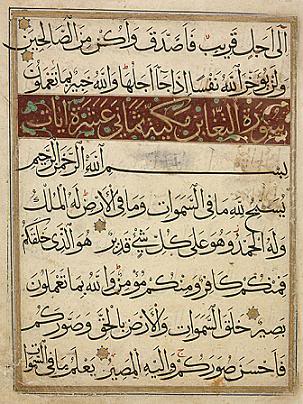 الى اجل قريب فاصدق واكن من الصالحين
ولن يؤخر الله نفسا اذا جا اجلها والله خبير بما تعملون
سورة التغابن مكية ثماني عشرة ايات
بسم الله الرحمن الرحيم
يسبح لله ما في السموات وما في الارض له الملك
وله الحمد وهو على كل شئ قدير هو الذي خلقكم
فمنكم كافر ومنكم مؤمن والله بما تعملون
بصير خلق السموات والارض بالحق وصوركم
فاحسن صوركم واليه المصير يعلم ما في السموات